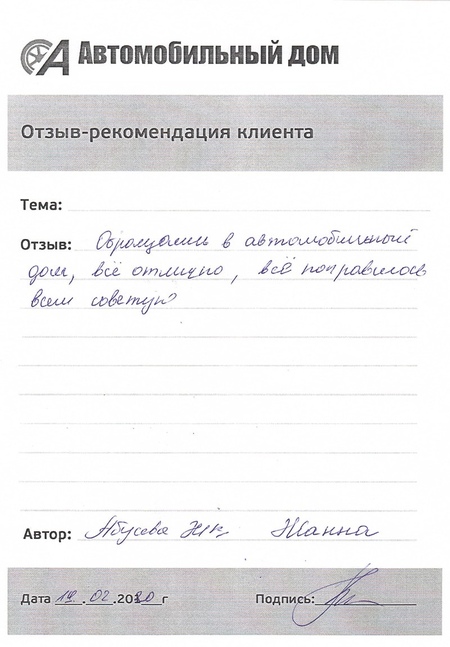 Автомобильный дом
Отзыв-рекомендация клиента
Тема:
Отзыв: Обращались в автомобильный
дом, всё отлично, всё понравилось
всем советую
Автор: Жанна
Дата 19.02.2020 г Подпись: